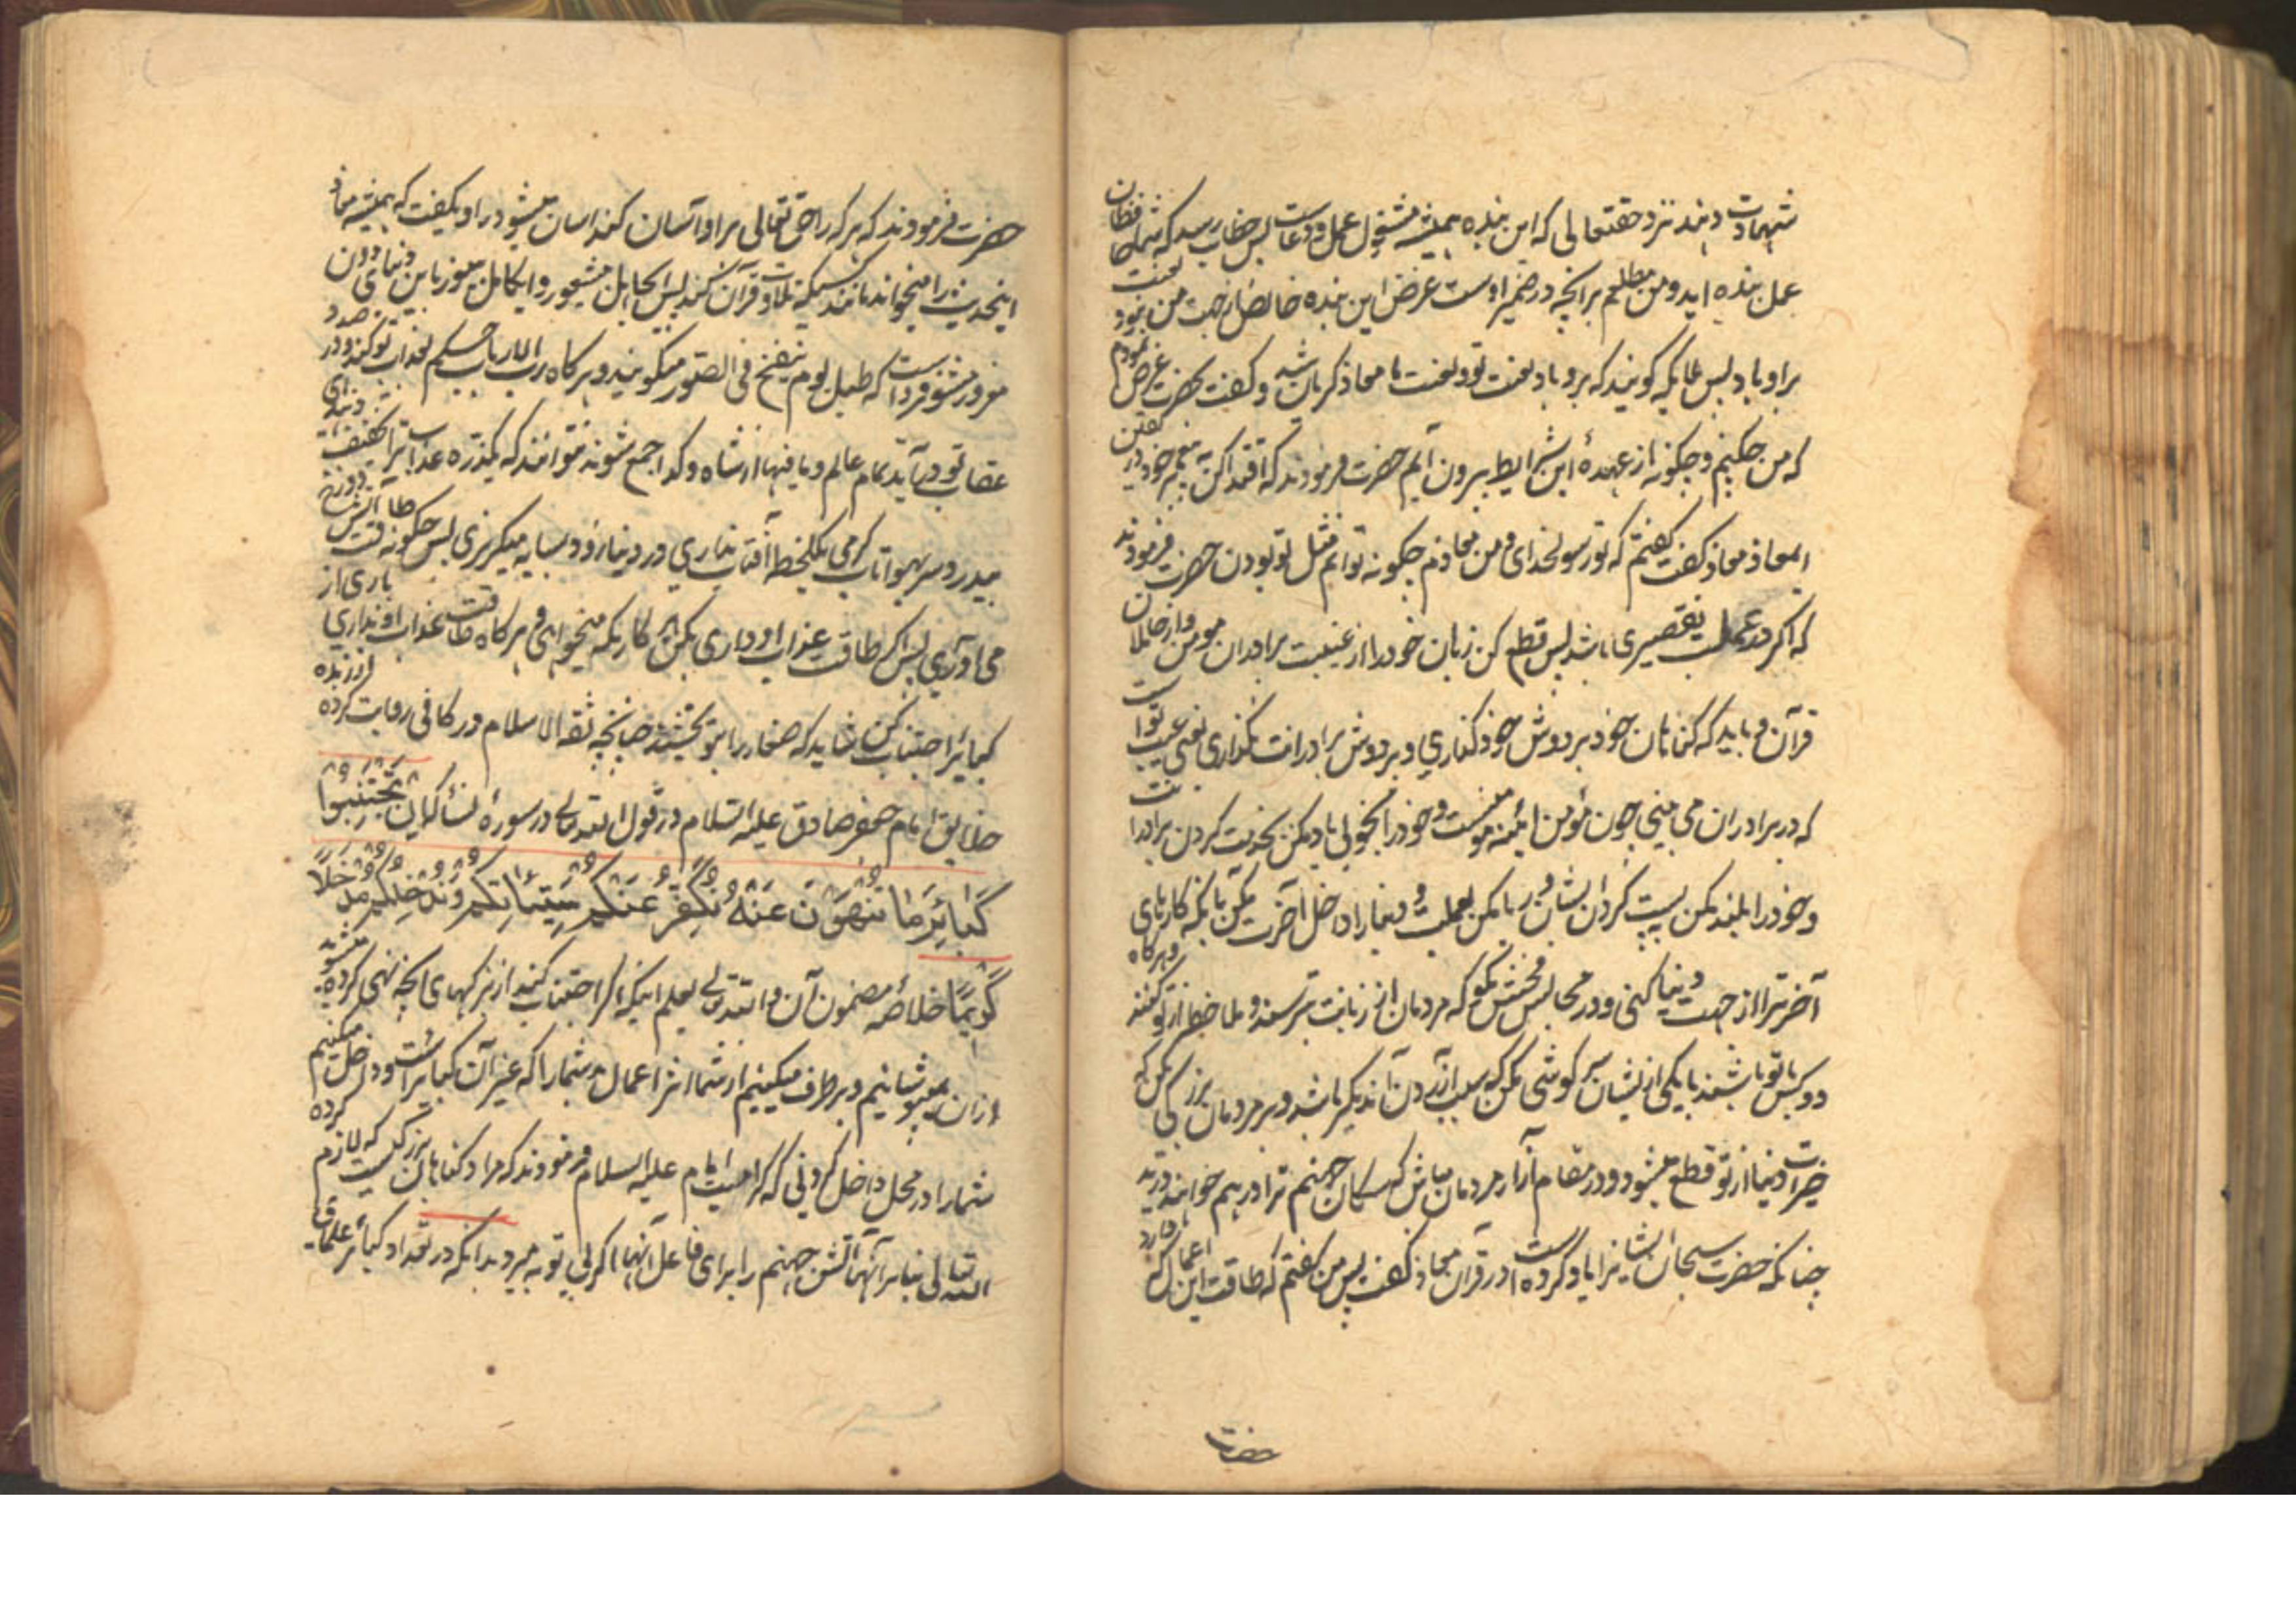 شهادت دهند نزد حقتعالی که این بنده همیشه مشغول عمل و دعاست پس خطاب رسد که شما حافظان
عمل بنده اید و من مطلعم برانچه در ضمیر اوست غرض این بنده خالص از جهت من نبود لعنت
براو باد پس ملایکه کویند که برو باد لعنت تو و لعنت ما معاذ کریان شد و کفت بحضرت عرض نمودم
که من چکنم و چکونه از عهدهٔ این شرایط بیرون آیم حضرت فرمودند که اقتدا کن به پیغمبر خود در یقین
ایمعاذ معاذ کفت کفتم که تو رسولخدای و من معاذم چکونه توانم مثل تو بودن حضرت فرمودند
که اکر در عملت تقصیری باشد پس قطع کن زبان خود را از غیبت برادران مومن و از حاملان
قرآن و باید که کناهان خود بر دوش خود کذاری و بر دوش برادرانت نکذاری یعنی عیب تو است
که در برادران می بینی چون مؤمن ایینه مومنست و خود را بخوبی یاد مکن بمذمت کردن برادرانت
و خود را بلند مکن به پست کردن ایشان و ریا مکن بعملت و دنیا را داخل آخرت مکن بانکه کارهای
آخرترا از جهت دنیا کنی و در مجالس فحش مکو که مردمان از زبانت ترسند و ملاحظه از تو کنند و هرکاه
دو کس با تو باشند با یکی ازیشان سر کوشی مکن که سبب آزردن آندیکر باشد و بر مردمان بزرکی مکن که
خیرات دنیا از تو قطع میشود و در مقام آزار مردمان مباش که سکان جهنم ترا در هم خواهند درید
چنانکه حضرت سبحان ایشانرا یاد کرده است در قرآن معاذ کفت پس من کفتم که طاقت این اعمال که دارد
حضرت
حضرت فرمودند که هر که را حق تعالی براو آسان کند اسان میشود راوی کفت که همیشه معاذ
اینحدیث را میخواند مانند کسیکه تلاوت قرآن کند پس ایجاهل بیشعور و ایکاهل بیغور باین دنیای دون
مغرور مشو فرداست که طبل یوم ینفخ فی الصور میکوبند و هرکاه رب الارباب حکیم بعذاب تو کند و در صدد
عقاب تو درآید تمام عالم و مافیها از شاه و کدا جمع شوند نتوانند که یکذره عذاب ترا تخفیف دهند ای
بیدرد سر بهوا تاب کرمی یکلحظه آفتاب نداری در دنیا زود بسایه میکریزی پس چکونه طاقت آتش دوزخ
می آوری پس اکر طاقت عذاب او داری بکن هر کاریکه میخواهی و هرکاه طاقت عذاب او نداری باری از
کبایر اجتناب کن شاید که صغایر را بتو بخشند چنانچه ثقه الاسلام در کافی روایت کرده
خلایق امام جعفر صادق علیه السلام در قول الله تعالی در سورهٔ نسا که إن تَجْتَنِبُوا
كَبَائِرَ مَا تُنْهَوْنَ عَنْهُ نُكَفِّرْ عَنْكُمْ سَيِّئَاتِكُمْ وَنُدْخِلْكُمْ مُدْخَلًا
كَرِيمًا خلاصهٔ مضمون آن والله تعالی یعلم اینکه اکر اجتناب کنید از بزرکهای انچه نهی کرده میشوید
ازان میپوشانیم و برطرف میکنیم از شما اثر اعمال بد شما را که غیر آن کبایر است و داخل میکنیم
شما را در محل داخل کردنی که کرامیست امام علیه السلام فرمودند که مراد کناهان بزرکیست که لازم کرده
الله تعالی بنابر آنها آتش جهنم را برای فاعل آنها اکر بی توبه میرد بدانکه در تعداد کبائر علمای